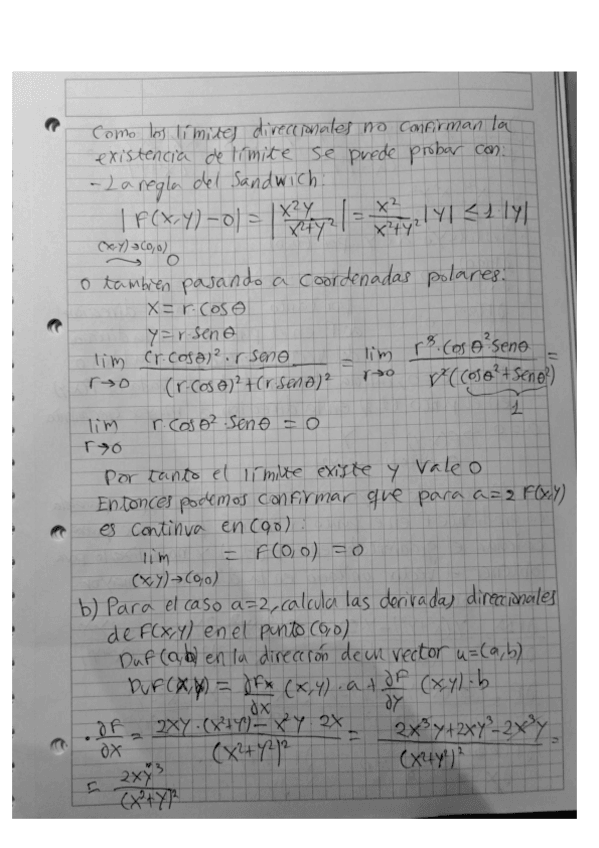 Como los límites direccionales no confirman la
existencia de límite se puede probar con:
- La regla del Sandwich:
|F(x,y)-0| = |x²y / x²+y²| = x² / x²+y² |y| ≤ 1 |y|
(x,y)→(0,0) → 0
o también pasando a coordenadas polares:
x = r·cosθ
y = r·senθ
lim r→0 (r·cosθ)²·r senθ / (r·cosθ)²+(r·senθ)² = lim r→0 r³·cosθ² senθ / r²(cosθ²+senθ²) =
1
lim r→0 r·cosθ²·senθ = 0
Por tanto el límite existe y vale 0
Entonces podemos confirmar que para a=2 F(x,y)
es continua en (0,0):
lim (x,y)→(0,0) = F(0,0) = 0
b) Para el caso a=2, calcula las derivadas direccionales
de F(x,y) en el punto (0,0)
DuF(a,b) en la dirección de un vector u=(a,b)
DuF(x,y) = ∂Fx/∂x (x,y)·a + ∂F/∂y (x,y)·b
· ∂F/∂x = 2xy·(x²+y²) - x²y·2x / (x²+y²)² = 2x³y+2xy³-2x³y / (x²+y²)² =
= 2xy³ / (x²+y²)²